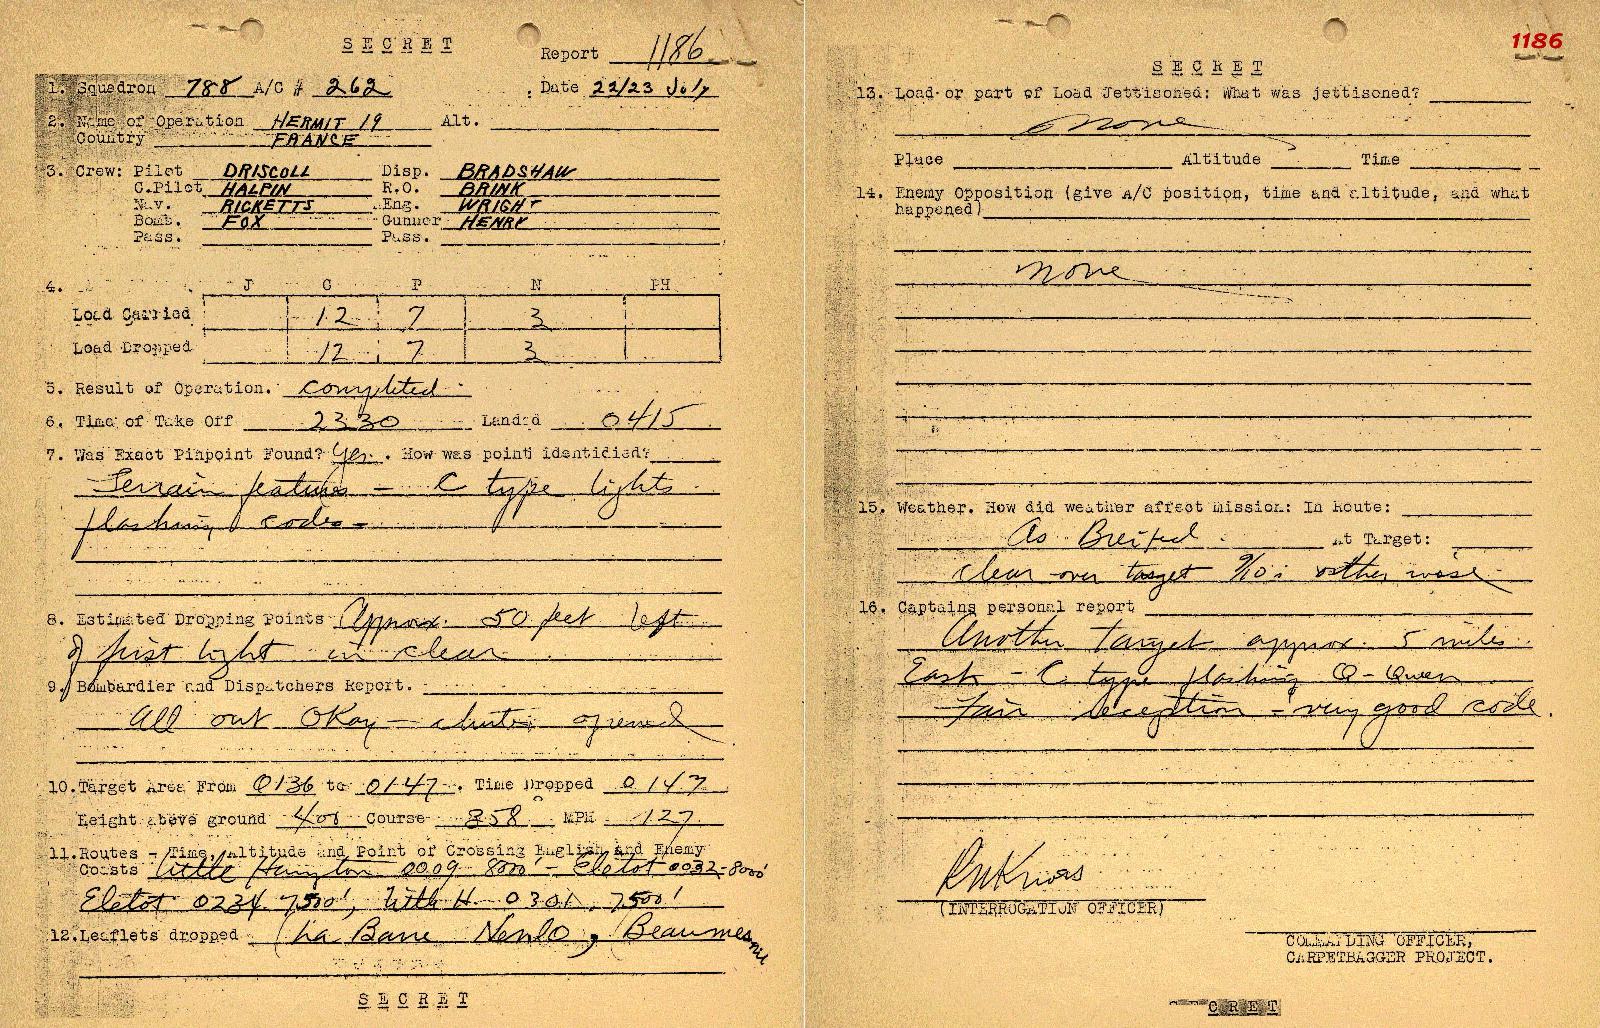 SECRET
Report 1186
1. Squadron 788 A/C # 262 Date 22/23 July
2. Name of Operation HERMIT 19 Alt.
Country FRANCE
3. Crew: Pilot DRISCOLL Disp. BRADSHAW
C.Pilot HALPIN R.O. BRINK
Nav. RICKETTS Eng. WRIGHT
Bomb. FOX Gunner HENRY
Pass. Pass.
4. J C P N PH
Load Carried 12 7 3
Load Dropped 12 7 3
5. Result of Operation. completed
6. Time of Take Off 2330 Landed 0415
7. Was Exact Pinpoint Found? Yes. How was point identidied?
Terrain features - C type lights
flashing codes -
8. Estimated Dropping Points Approx. 50 feet left
of first light in clear
9. Bombardier and Dispatchers Report.
All out Okay - chutes opened
10. Target Area From 0136 to 0147. Time Dropped 0147
Height above ground 400 Course 358 MPH 127
11. Routes - Time, Altitude and Point of Crossing English and Enemy
Coasts Little Hampton 0009 8000' - Eletot 0032-8000'
Eletot 0234 7500', Little H. 0301, 7500'
12. Leaflets dropped La Barre Beaumesnil
SECRET
1186
SECRET
13. Load or part of Load Jettisoned: What was jettisoned?
None
Place Altitude Time
14. Enemy Opposition (give A/C position, time and altitude, and what
happened)
None
15. Weather. How did weather affect mission: In Route:
As Breifed At Target:
clear over target 9/10 : otherwise
16. Captains personal report
Another Target approx. 5 miles
East - C type flashing Q-Queen
Fair reception - very good code.
(INTERROGATION OFFICER)
COMMANDING OFFICER,
CARPETBAGGER PROJECT.
CRET